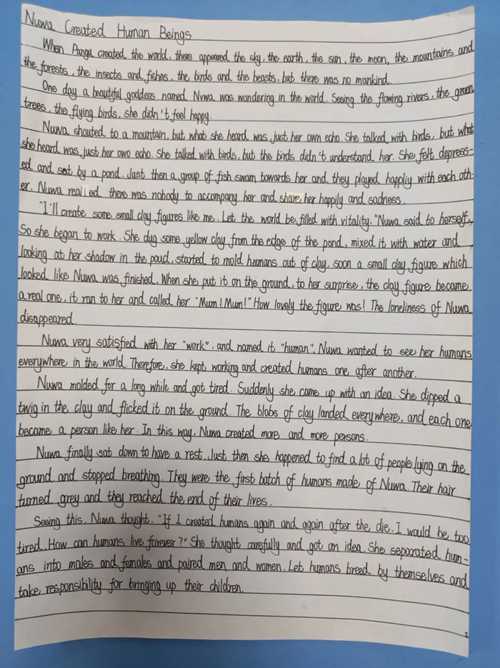 Nuwa Created Human Beings
When Pangu created the world, there appeared the sky, the earth, the sun, the moon, the mountains and
the forests, the insects and fishes, the birds and the beasts, but there was no mankind.
One day a beautiful goddess named Nuwa was wandering in the world. Seeing the flowing rivers, the green
trees, the flying birds, she didn't feel happy.
Nuwa shouted to a mountain, but what she heard was just her own echo. She talked with birds, but what
she heard was just her own echo. She talked with birds, but the birds didn't understand her. She felt depress-
ed and sat by a pond. Just then a group of fish swam towards her and they played happily with each oth-
er. Nuwa realized there was nobody to accompany her and share her happily and sadness.
"I'll create some small clay figures like me. Let the world be filled with vitality." Nuwa said to herself,
So she began to work. She dug some yellow clay from the edge of the pond, mixed it with water and,
looking at her shadow in the poud, started to mold humans out of clay. soon a small clay figure which
looked like Nuwa was finished. When she put it on the ground, to her surprise, the clay figure became
a real one, it ran to her and called her "Mum! Mum!" How lovely the figure was! The loneliness of Nuwa
disappeared.
Nuwa very satisfied with her "work", and named it "human". Nuwa wanted to see her humans
everywhere in the world. Therefore, she kept working and created humans one after another.
Nuwa molded for a long while and got tired. Suddenly she came up with an idea. She dipped a
twig in the clay and flicked it on the ground. The blobs of clay landed everywhere, and each one
became a person like her. In this way, Nuwa created more and more persons.
Nuwa finally sat down to have a rest. Just then she happened to find a lot of people lying on the
ground and stopped breathing. They were the first batch of humans made of Nuwa. Their hair
turned grey and they reached the end of their lives.
Seeing this, Nuwa thought, "If I created humans again and again after the die, I would be too
tired. How can humans live forever?" She thought carefully and got an idea. She separated hum-
ans into males and females and paired men and women. Let humans breed by themselves and
take responsibility for bringing up their children.